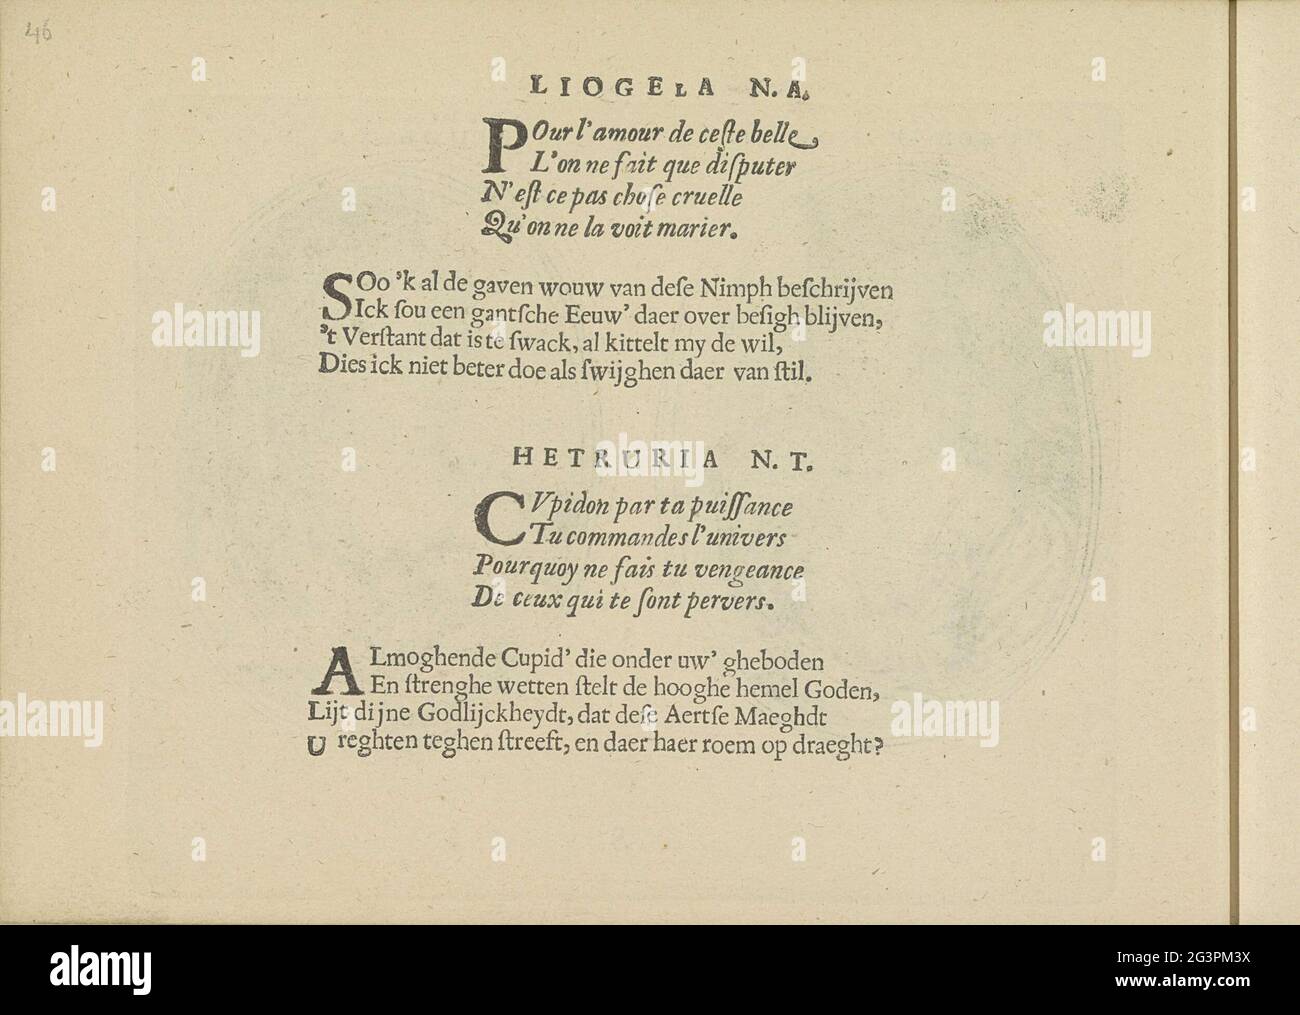 46
LIOGELA N. A.
POur l'amour de ceſte belle,
L'on ne fait que diſputer
N'eſt ce pas choſe cruelle
Qu'on ne la voit marier.
SOo 'k al de gaven wouw van deſe Nimph beſchrijven
Ick ſou een gantſche Eeuw' daer over beſigh blijven,
't Verſtant dat is te ſwack, al kittelt my de wil,
Dies ick niet beter doe als ſwijghen daer van ſtil.
HETRURIA N. T.
CVpidon par ta puiſſance
Tu commandes l'univers
Pourquoy ne fais tu vengeance
De ceux qui te ſont pervers.
ALmoghende Cupid' die onder uw' gheboden
En ſtrenghe wetten ſtelt de hooghe hemel Goden,
Lijt dijne Godlijckheydt, dat deſe Aertſe Maeghdt
U reghten teghen ſtreeft, en daer haer roem op draeght?
alamy
Image ID: 2G3PM3X
www.alamy.com